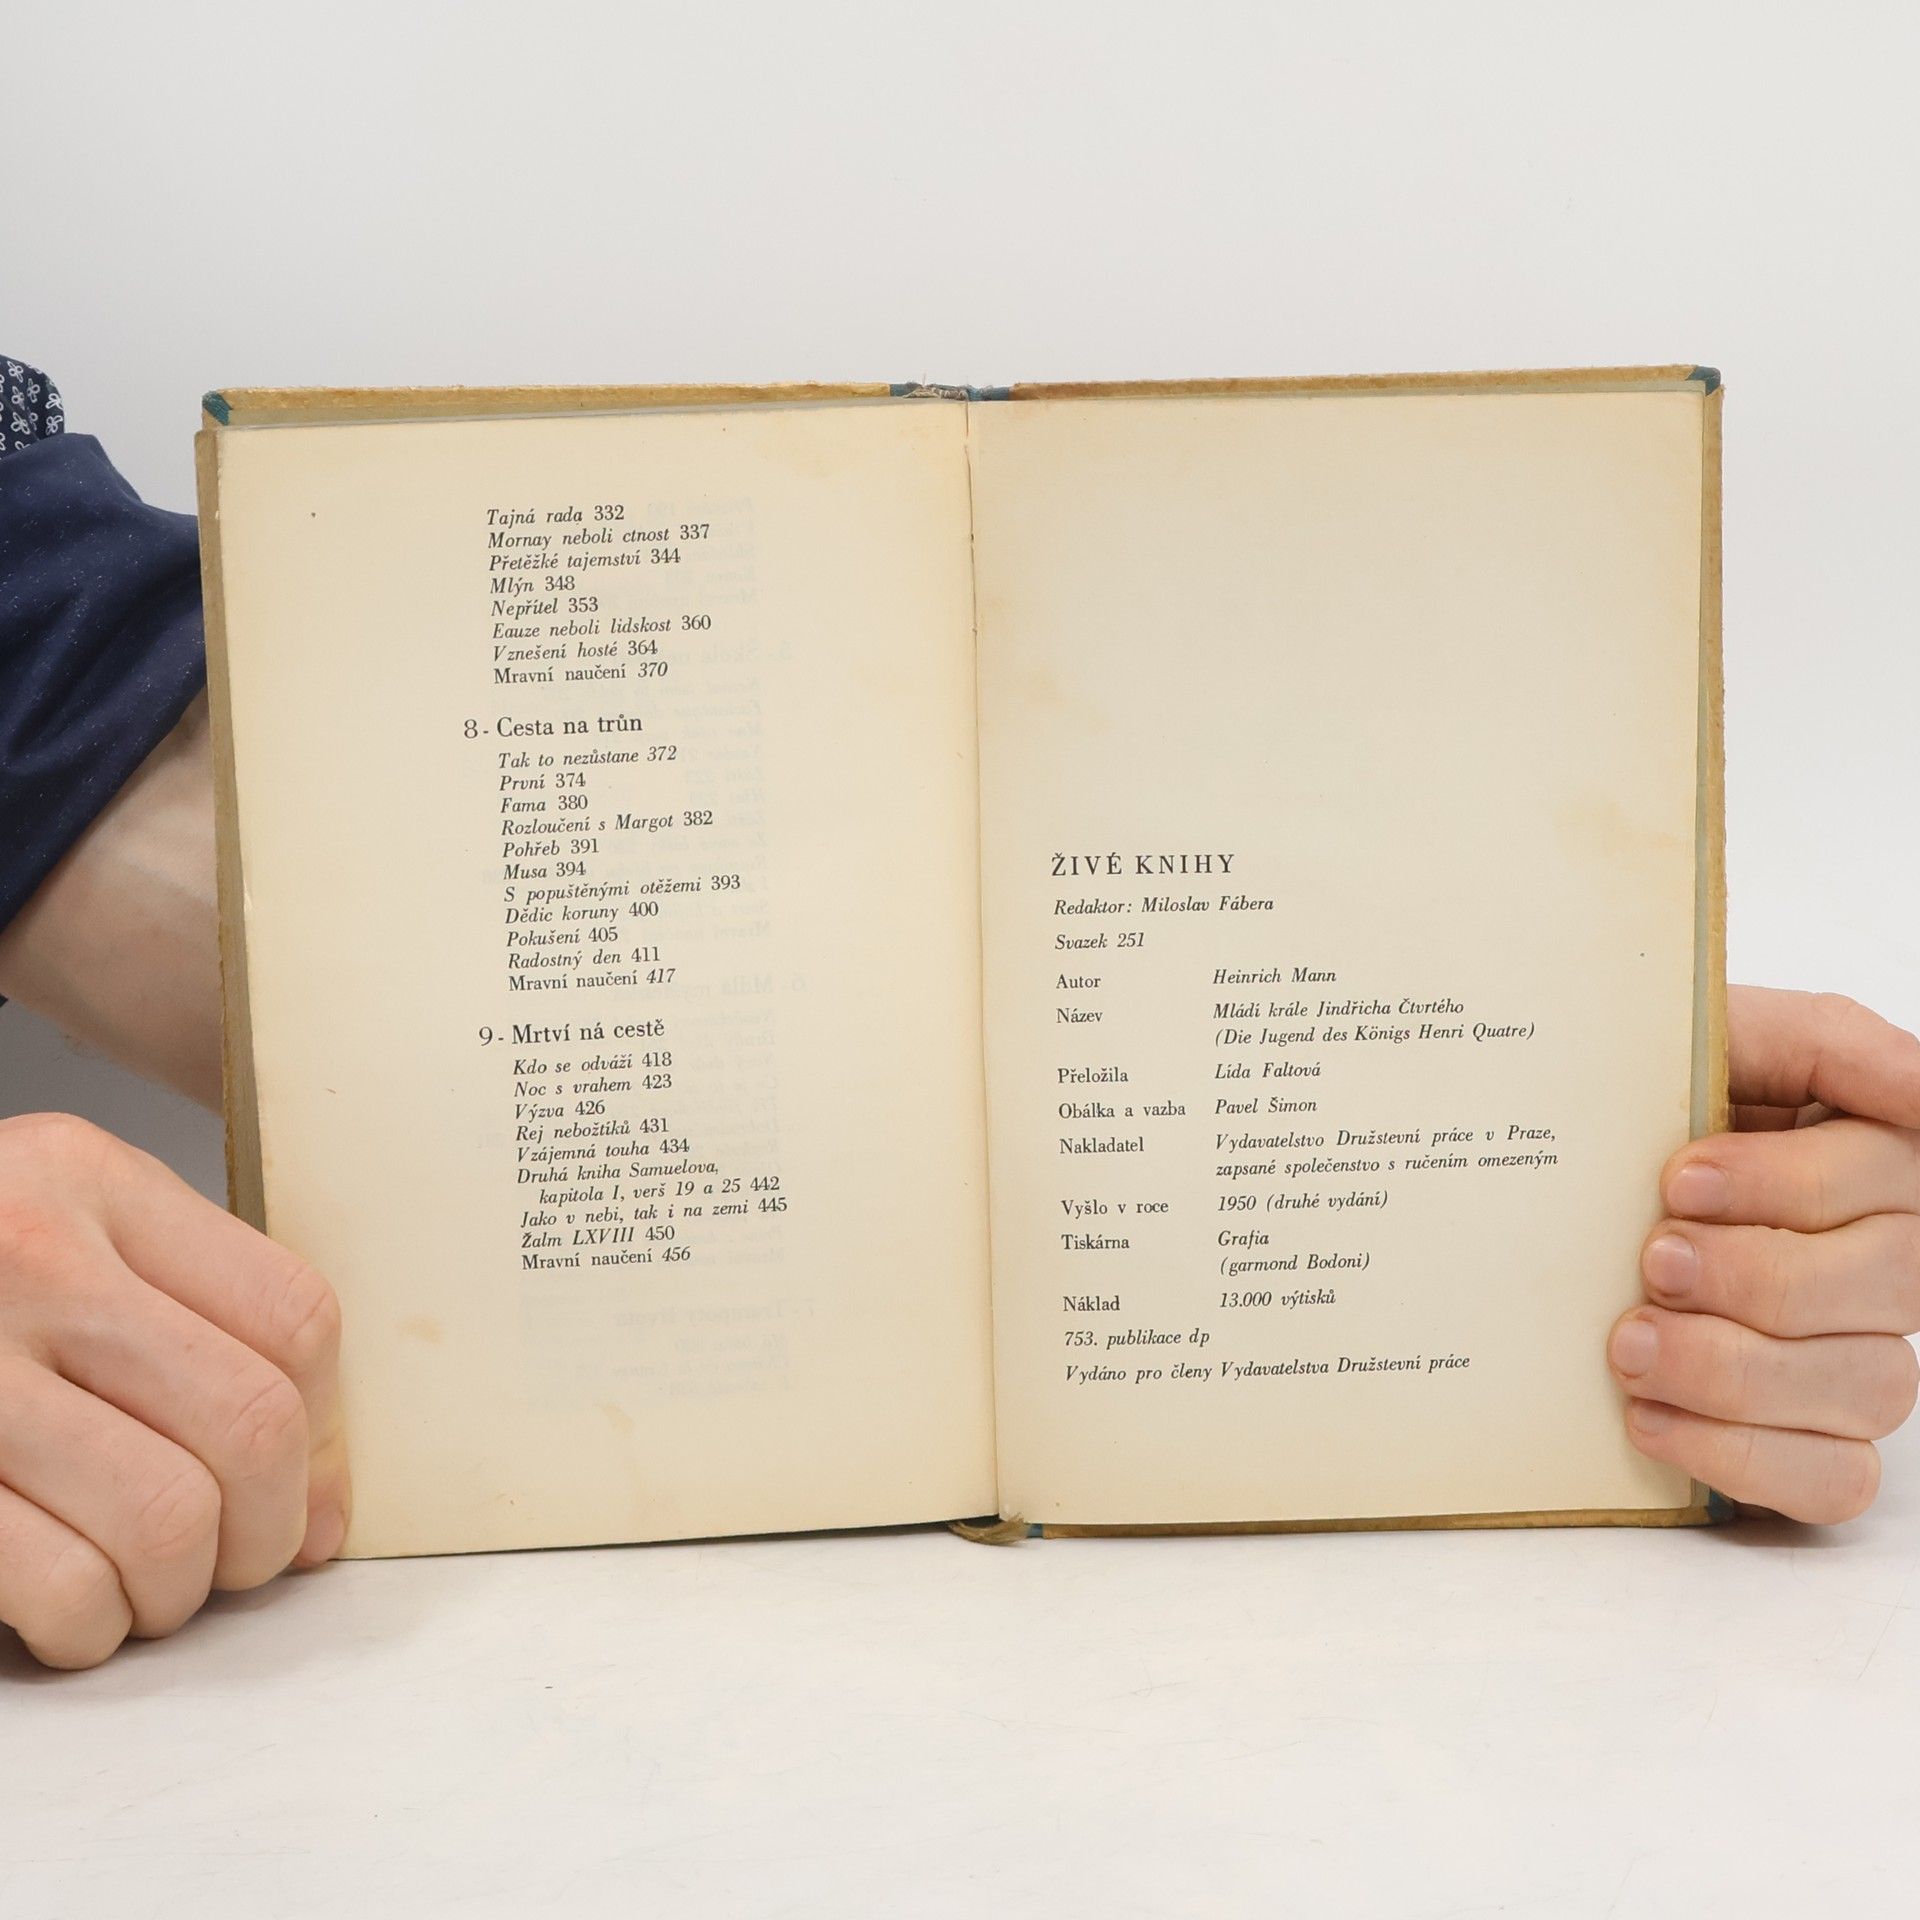 Tajná rada 332
Mornay neboli ctnost 337
Přetěžké tajemství 344
Mlýn 348
Nepřítel 353
Eauze neboli lidskost 360
Vznešení hosté 364
Mravní naučení 370
8 - Cesta na trůn
Tak to nezůstane 372
První 374
Fama 380
Rozloučení s Margot 382
Pohřeb 391
Musa 394
S popuštěnými otěžemi 393
Dědic koruny 400
Pokušení 405
Radostný den 411
Mravní naučení 417
9 - Mrtví ná cestě
Kdo se odváží 418
Noc s vrahem 423
Výzva 426
Rej nebožtíků 431
Vzájemná touha 434
Druhá kniha Samuelova,
kapitola I, verš 19 a 25 442
Jako v nebi, tak i na zemi 445
Žalm LXVIII 450
Mravní naučení 456
ŽIVÉ KNIHY
Redaktor: Miloslav Fábera
Svazek 251
Autor Heinrich Mann
Název Mládí krále Jindřicha Čtvrtého
(Die Jugend des Königs Henri Quatre)
Přeložila Lída Faltová
Obálka a vazba Pavel Šimon
Nakladatel Vydavatelstvo Družstevní práce v Praze,
zapsané společenstvo s ručením omezeným
Vyšlo v roce 1950 (druhé vydání)
Tiskárna Grafia
(garmond Bodoni)
Náklad 13.000 výtisků
753. publikace dp
Vydáno pro členy Vydavatelstva Družstevní práce